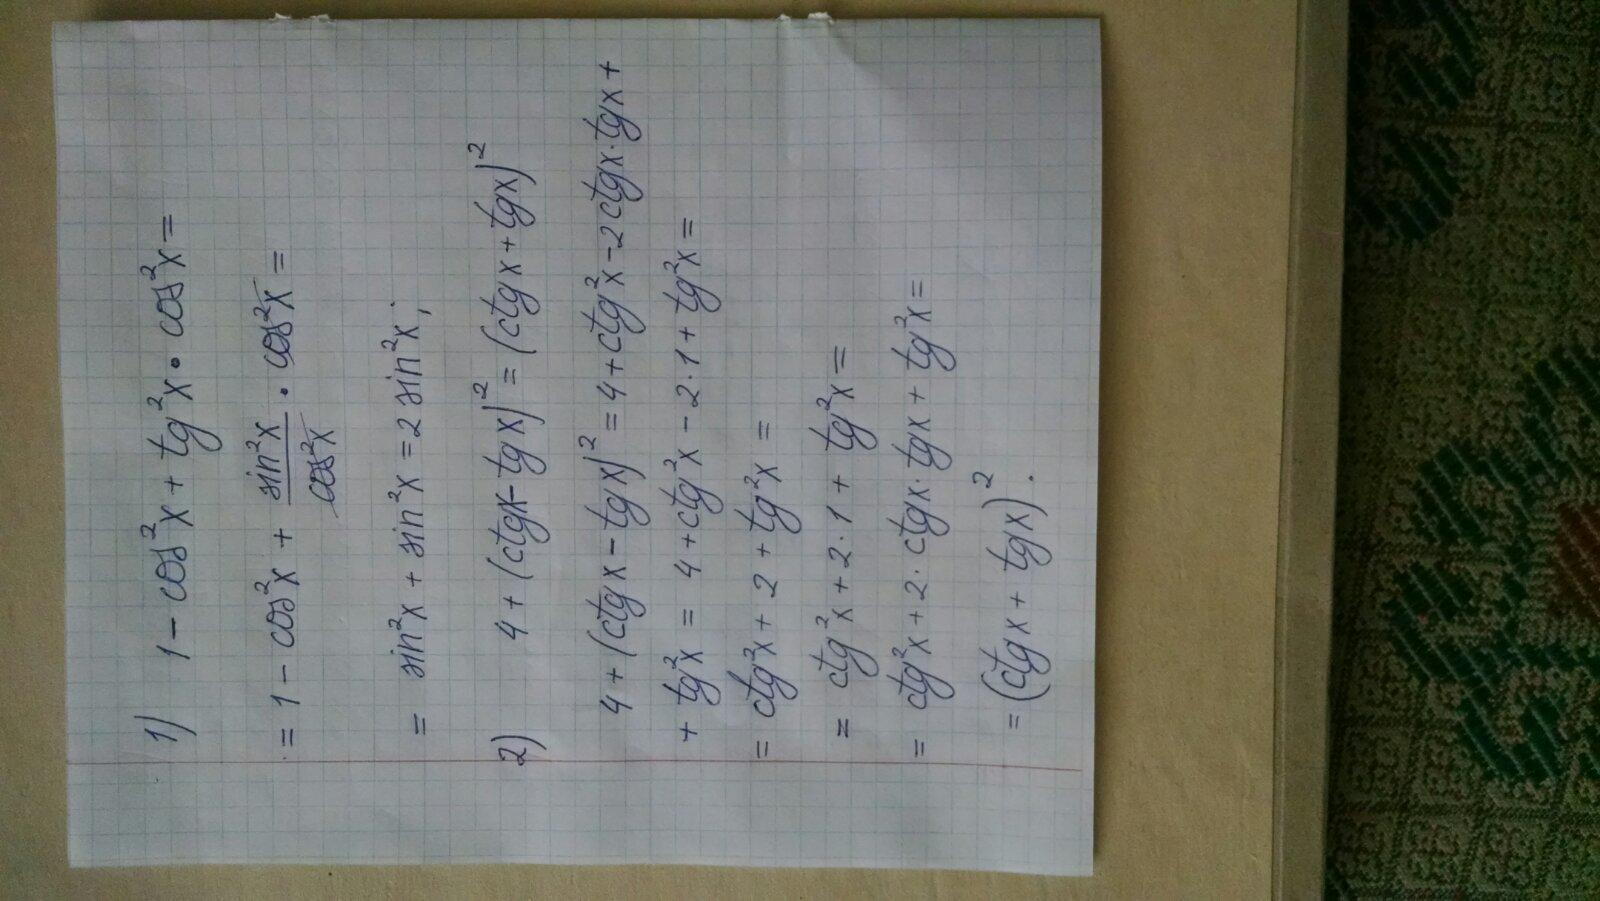 1) 1 - cos²x + tg²x • cos²x =
= 1 - cos²x + sin²x/cos²x · cos²x =
= sin²x + sin²x = 2 sin²x ;
2) 4 + (ctgx - tgx)² = (ctgx + tgx)²
4 + (ctgx - tgx)² = 4 + ctg²x - 2ctgx·tgx +
+ tg²x = 4 + ctg²x - 2·1 + tg²x =
= ctg²x + 2 + tg²x =
= ctg²x + 2·1 + tg²x =
= ctg²x + 2·ctgx·tgx + tg²x =
= (ctgx + tgx)².